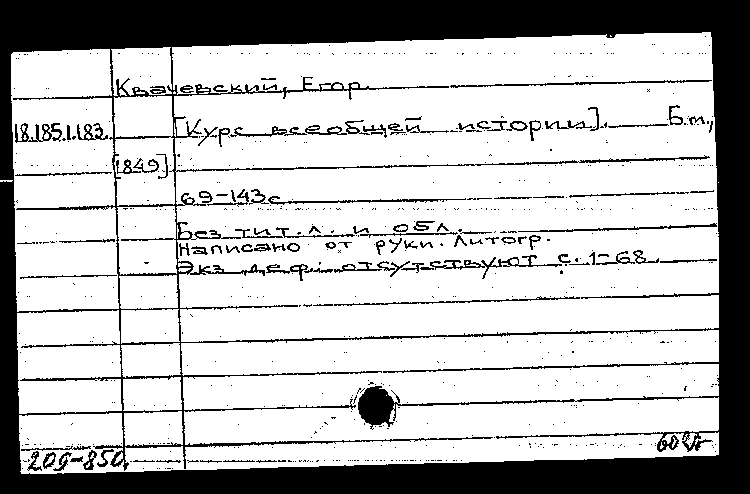 Квачевский, Егор.
18.185.1.183. [Курс всеобщей истории]. Б.м.,
[1849].
69-143с
Без тит.л. и обл.
Написано от руки. Литогр.
Экз. деф.: отсутствуют с. 1-68.
209-850.